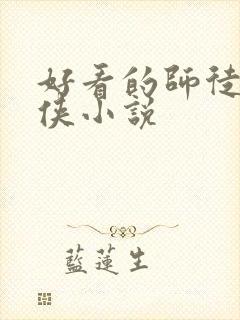 好看的師徒
俠小說
藍蓮生